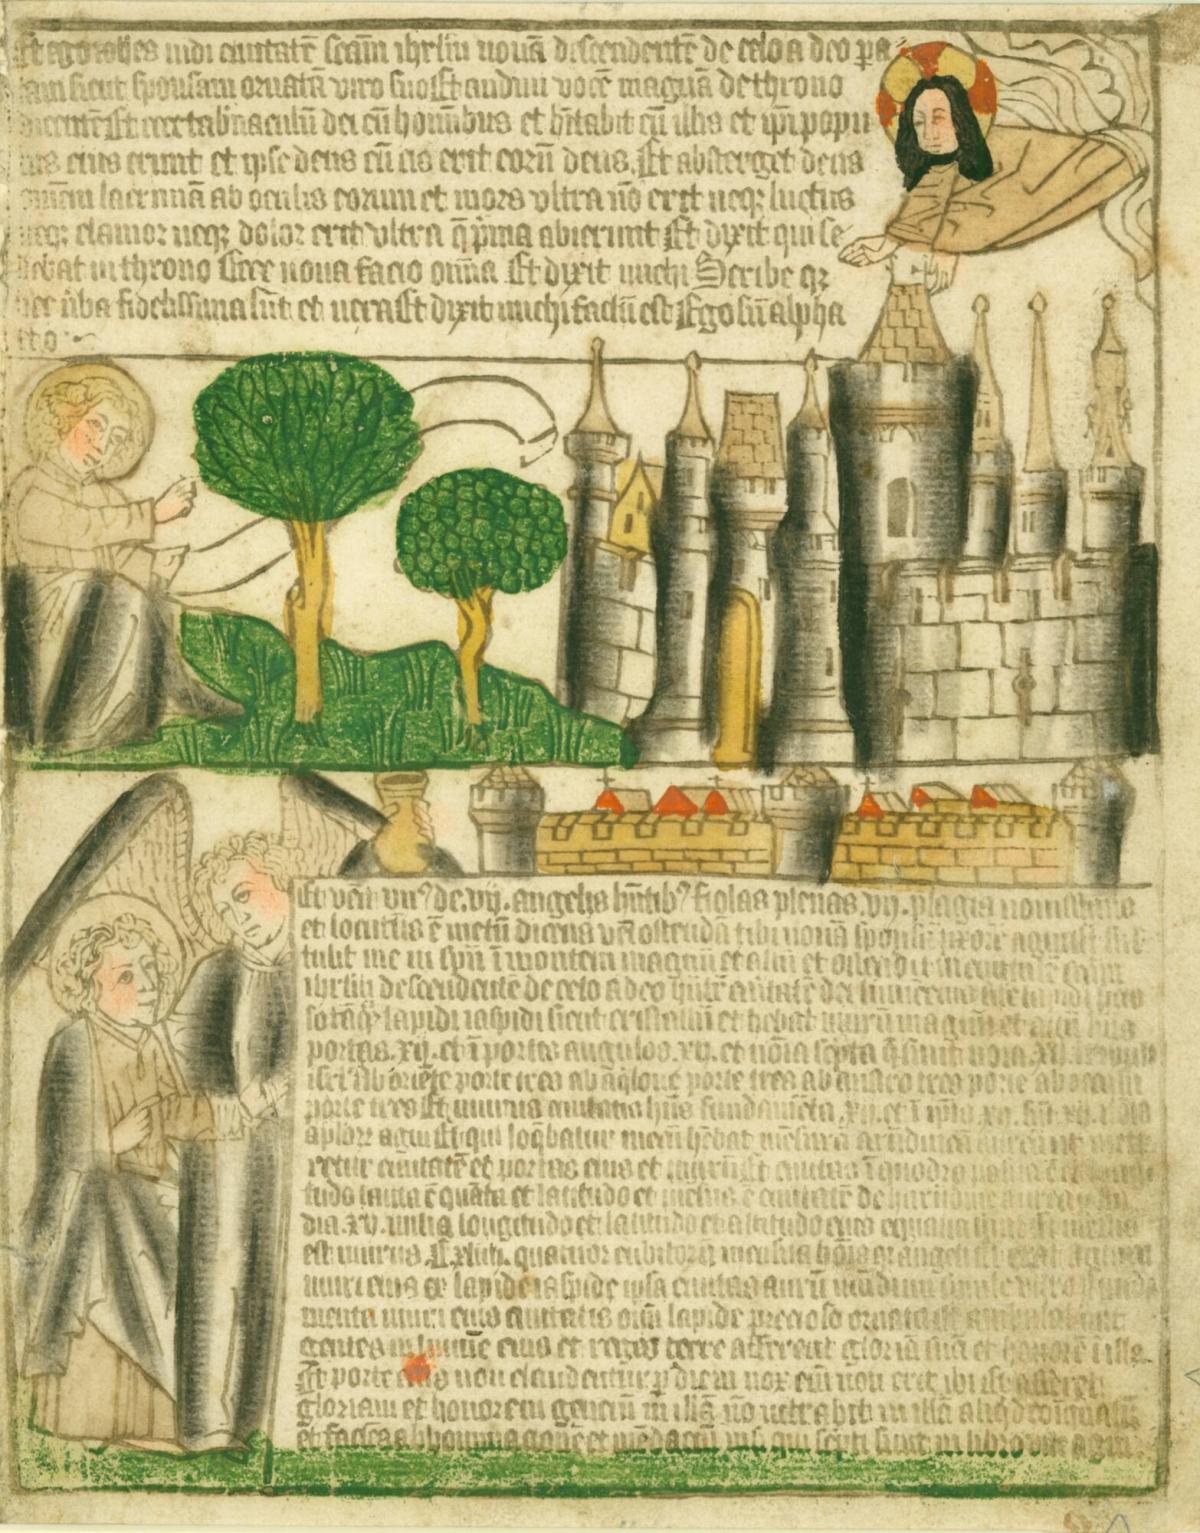 Et ego iohes uidi ciuitatē scām ihrlm̄ nouā descendentē de celo a deo pa
ratam sicut sponsam ornatā viro suo Et audiui vocē magnā de throno
dicentē Et ecce tabnaculū dei cū hominibus et hitabit cū illis et ip̄i popu
lus eius erunt et ipse deus cū eis erit eorū deus. Et absterget deus
omnem lacrimā ab oculis eorum et mors vltra nō erit neqꝫ luctus
neqꝫ clamor neqꝫ dolor erit vltra q̄ p̄ma abierunt Et dixit qui se
debat in throno Ecce noua facio omīa Et dixit michi Scribe qꝫ
hec ūba fidelissima sūt et uera Et dixit michi factū est Ego sū alpha
et o
Et venit vn⁹ de .vij. angelis hn̄tib⁹ fiolas plenas .vij. plagis nouissimis
et locutus ē mecū dicens veī ostendā tibi nouā sponsā uxorē agni Et sus
tulit me in spū ī montem magnū et altū et ostendit m ciuitatē scām
ihrlm̄ descendentē de celo a deo hn̄tē claritatē dei
lapidi iaspidi sicut cristallū et hēbat murū magnū et altū hn̄s
portas .xij. et ī portis angulos .xij. et noīa scpta
isrl Ab oriēte porte tres ab aq̄lone porte tres ab austro tres porte ab occasu
porte tres Et murus ciuitatis hn̄s fundamēta .xij. et ī ip̄is .xij.
aplorꝫ agni Et qui loq̄batur mecū hēbat mēsurā arūdineā aureā ut meti
retur ciuitatē et portas eius et murū Et ciuitas ī quadro posita ē et longi
tudo tanta ē quāta et latitudo et mēsus ē ciuitatē de harūdine aurea
dia .xij. milia longitudo et latitudo et altitudo eius equalia
est murus .Cxliiij. quatuor cubitorū mensura hoīs angeli Et erat
muri eius ex lapide iaspide ipsa ciuitas aurū mūdum simile vitro
menta muri eius ciuitatis omī lapide precioso ornata Et ambulabunt
gentes in lumīe eius et reges terre afferent gloriā suā et honorē ī illā
Et porte eius non claudentur p diem nox eīm non erit ibi Et afferēt
gloriam et honorem genciū in illā nō intrabit in illā aliqd coīnquatū
et faciēs abhominaconē et mēdaciū nisi qui scpti sunt in libro vite agni